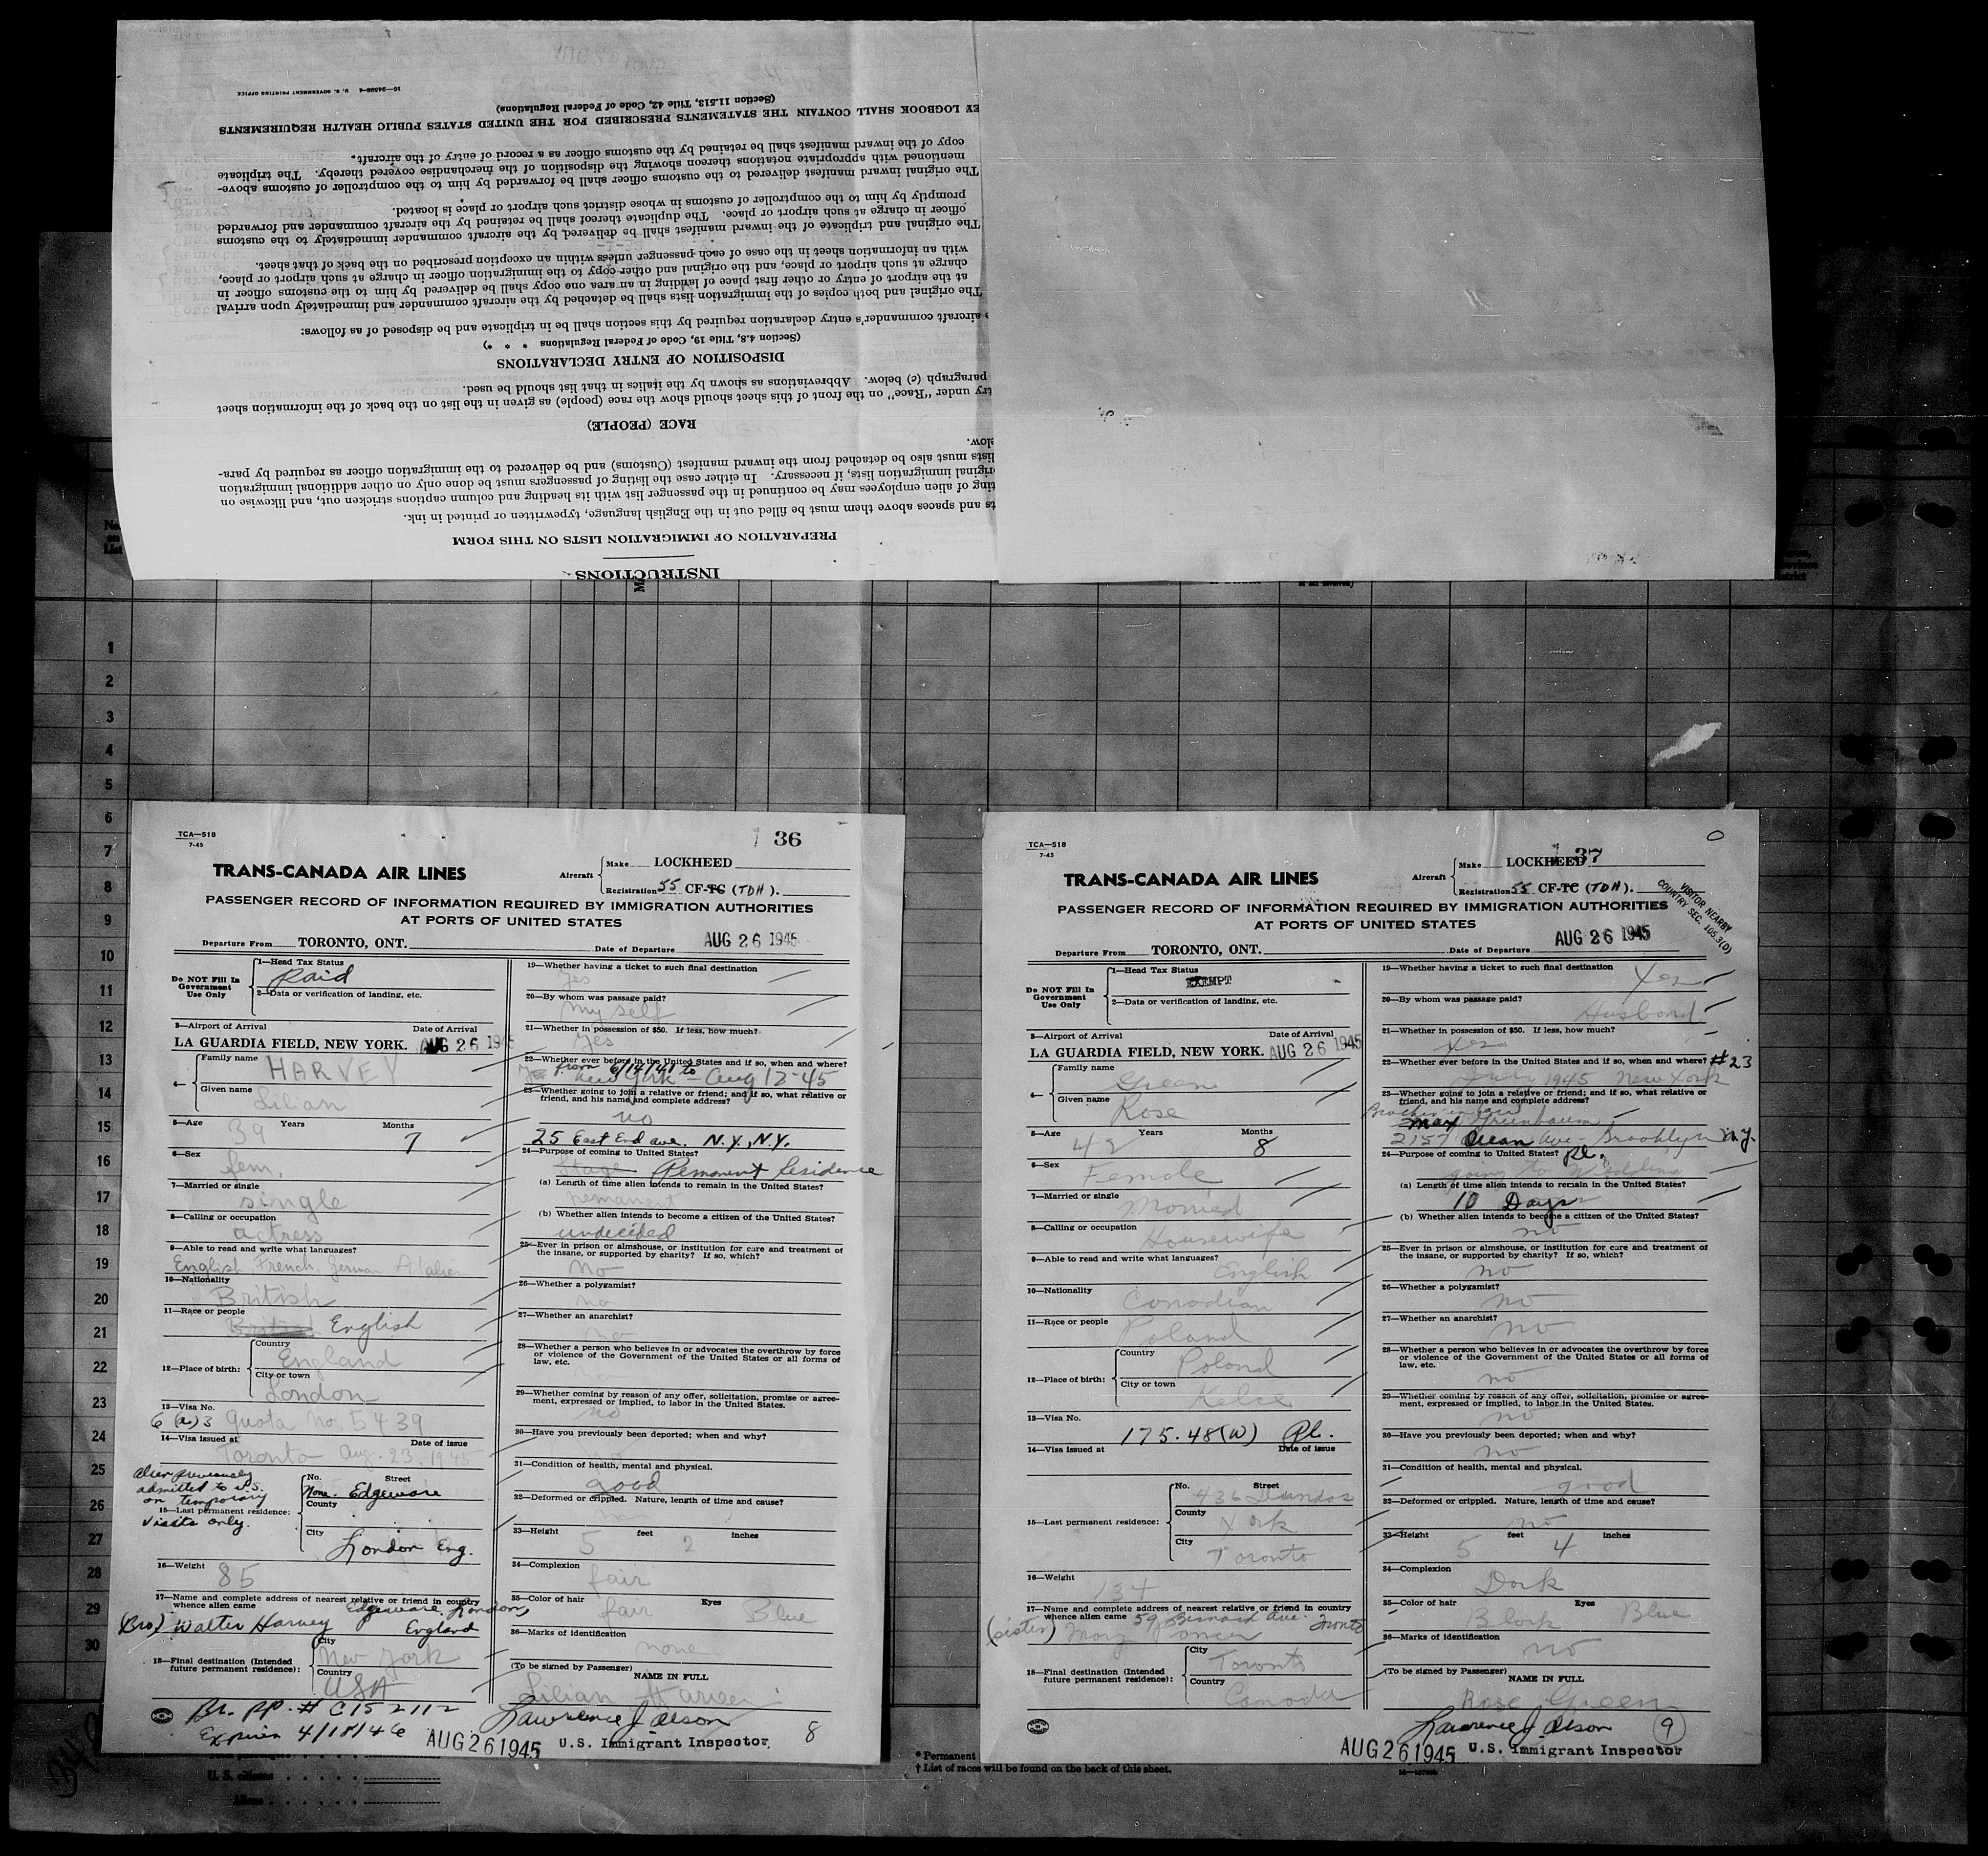 INSTRUCTIONS
PREPARATION OF IMMIGRATION LISTS ON THIS FORM
ts and spaces above them must be filled out in the English language, typewritten or printed in ink.
ting of alien employees may be continued in the passenger list with its heading and column captions stricken out, and likewise on
riginal immigration lists, if necessary. In either case the listing of passengers must be done only on other additional immigration
lists must also be detached from the inward manifest (Customs) and be delivered to the immigration officer as required by para-
low.
RACE (PEOPLE)
try under "Race" on the front of this sheet should show the race (people) as given in the list on the back of the information sheet
paragraph (c) below. Abbreviations as shown by the italics in that list should be used.
DISPOSITION OF ENTRY DECLARATIONS
(Section 4.8, Title 19, Code of Federal Regulations * * *)
e aircraft commander's entry declaration required by this section shall be in triplicate and be disposed of as follows:
The original and both copies of the immigration lists shall be detached by the aircraft commander and immediately upon arrival
at the airport of entry or other first place of landing in an area one copy shall be delivered by him to the customs officer in
charge at such airport or place, and the original and other copy to the immigration officer in charge at such airport or place,
with an information sheet in the case of each passenger unless within an exception prescribed on the back of that sheet.
The original and triplicate of the inward manifest shall be delivered by the aircraft commander immediately to the customs
officer in charge at such airport or place. The duplicate thereof shall be retained by the aircraft commander and forwarded
promptly by him to the comptroller of customs in whose district such airport or place is located.
The original inward manifest delivered to the customs officer shall be forwarded by him to the comptroller of customs above-
mentioned with appropriate notations thereon showing the disposition of the merchandise covered thereby. The triplicate
copy of the inward manifest shall be retained by the customs officer as a record of entry of the aircraft.
EY LOGBOOK SHALL CONTAIN THE STATEMENTS PRESCRIBED FOR THE UNITED STATES PUBLIC HEALTH REQUIREMENTS
(Section 11.513, Title 42, Code of Federal Regulations)
16—24506-4 U. S. GOVERNMENT PRINTING OFFICE
No.
on
List
1
2
3
4
5
6
7
8
9
10
11
12
13
14
15
16
17
18
19
20
21
22
23
24
25
26
27
28
29
30
TCA—518
7-45
36
TRANS-CANADA AIR LINES
Aircraft
Make LOCKHEED
Registration 55 CF-TC (TDH).
PASSENGER RECORD OF INFORMATION REQUIRED BY IMMIGRATION AUTHORITIES
AT PORTS OF UNITED STATES
Departure From TORONTO, ONT.
Date of Departure AUG 26 1945
Do NOT Fill In
Government
Use Only
1—Head Tax Status
Paid
2—Data or verification of landing, etc.
3—Airport of Arrival Date of Arrival
LA GUARDIA FIELD, NEW YORK. AUG 26 1945
4— Family name HARVEY
Given name Lilian
5—Age 39 Years Months 7
6—Sex fem.
7—Married or single
single
8—Calling or occupation
actress
9—Able to read and write what languages?
English, French, German Italien
10—Nationality
British
11—Race or people
British English
12—Place of birth:
Country
England
City or town
London
13—Visa No.
6 (a) 3 Quota No. 5439
14—Visa issued at Date of issue
Toronto Aug. 23, 1945
alien previously
admitted to U.S.
on temporary
visits only.
15—Last permanent residence:
No. Street
None. Edgeware
County
City
London Eng.
16—Weight
85
17—Name and complete address of nearest relative or friend in country
whence alien came Edgeware, London,
(Bro) Walter Harvey England
18—Final destination (Intended
future permanent residence):
City
New York
Country
USA
Br. PP. # C152112
Expires 4/18/46
AUG 26 1945
19—Whether having a ticket to such final destination
Yes
20—By whom was passage paid?
myself
21—Whether in possession of $50. If less, how much?
Yes
22—Whether ever before in the United States and if so, when and where?
from 6/14/41 to
New York - Aug 12-45
23—Whether going to join a relative or friend; and if so, what relative or
friend, and his name and complete address?
no
25 East End ave. N.Y., N.Y.
24—Purpose of coming to United States?
Stage Permanent Residence
(a) Length of time alien intends to remain in the United States?
permanent
(b) Whether alien intends to become a citizen of the United States?
undecided
25—Ever in prison or almshouse, or institution for care and treatment of
the insane, or supported by charity? If so, which?
No
26—Whether a polygamist?
no
27—Whether an anarchist?
no
28—Whether a person who believes in or advocates the overthrow by force
or violence of the Government of the United States or all forms of
law, etc.
no
29—Whether coming by reason of any offer, solicitation, promise or agree-
ment, expressed or implied, to labor in the United States.
no
30—Have you previously been deported; when and why?
31—Condition of health, mental and physical.
good
32—Deformed or crippled. Nature, length of time and cause?
33—Height 5 feet 2 inches
34—Complexion
fair
35—Color of hair Eyes
fair Blue
36—Marks of identification
none
(To be signed by Passenger)
NAME IN FULL
Lilian Harvey
Lawrence J. Olson
U.S. Immigrant Inspector.
8
TCA—518
7-45
37
TRANS-CANADA AIR LINES
Aircraft
Make LOCKHEED
Registration 55 CF-TC (TDH).
VISITOR NEARBY
COUNTRY SEC. 105.3(D)
PASSENGER RECORD OF INFORMATION REQUIRED BY IMMIGRATION AUTHORITIES
AT PORTS OF UNITED STATES
Departure From TORONTO, ONT.
Date of Departure AUG 26 1945
Do NOT Fill In
Government
Use Only
1—Head Tax Status
EXEMPT
2—Data or verification of landing, etc.
3—Airport of Arrival Date of Arrival
LA GUARDIA FIELD, NEW YORK. AUG 26 1945
4— Family name Green
Given name Rose
5—Age 42 Years Months 8
6—Sex
Female
7—Married or single
Married
8—Calling or occupation
Housewife
9—Able to read and write what languages?
English
10—Nationality
Canadian
11—Race or people
Poland
12—Place of birth:
Country
Poland
City or town
Kelce
13—Visa No.
175.48(W) Pl.
14—Visa issued at Date of issue
15—Last permanent residence:
No. Street
436 Dundas
County
York
City
Toronto
16—Weight
134
17—Name and complete address of nearest relative or friend in country
whence alien came 59 Bernard Ave. Toronto
(sister) Mary
18—Final destination (Intended
future permanent residence):
City
Toronto
Country
Canada
19—Whether having a ticket to such final destination
Yes
20—By whom was passage paid?
Husband
21—Whether in possession of $50. If less, how much?
Yes
22—Whether ever before in the United States and if so, when and where? #23
July 1945 New York
23—Whether going to join a relative or friend; and if so, what relative or
friend, and his name and complete address?
Brother in law
Max Greenbaum
2157 Ocean Ave - Brooklyn N.y.
24—Purpose of coming to United States? Pl.
going to Wedding
(a) Length of time alien intends to remain in the United States?
10 Days
(b) Whether alien intends to become a citizen of the United States?
no
25—Ever in prison or almshouse, or institution for care and treatment of
the insane, or supported by charity? If so, which?
no
26—Whether a polygamist?
no
27—Whether an anarchist?
no
28—Whether a person who believes in or advocates the overthrow by force
or violence of the Government of the United States or all forms of
law, etc.
no
29—Whether coming by reason of any offer, solicitation, promise or agree-
ment, expressed or implied, to labor in the United States.
no
30—Have you previously been deported; when and why?
no
31—Condition of health, mental and physical.
good
32—Deformed or crippled. Nature, length of time and cause?
no
33—Height 5 feet 4 inches
34—Complexion
Dark
35—Color of hair Eyes
Black Blue
36—Marks of identification
no
(To be signed by Passenger)
NAME IN FULL
Rose Green
Lawrence J. Olson 9
AUG 26 1945 U.S. Immigrant Inspector
* Permanent
† List of races will be found on the back of this sheet.
U. S. citizens
Aliens